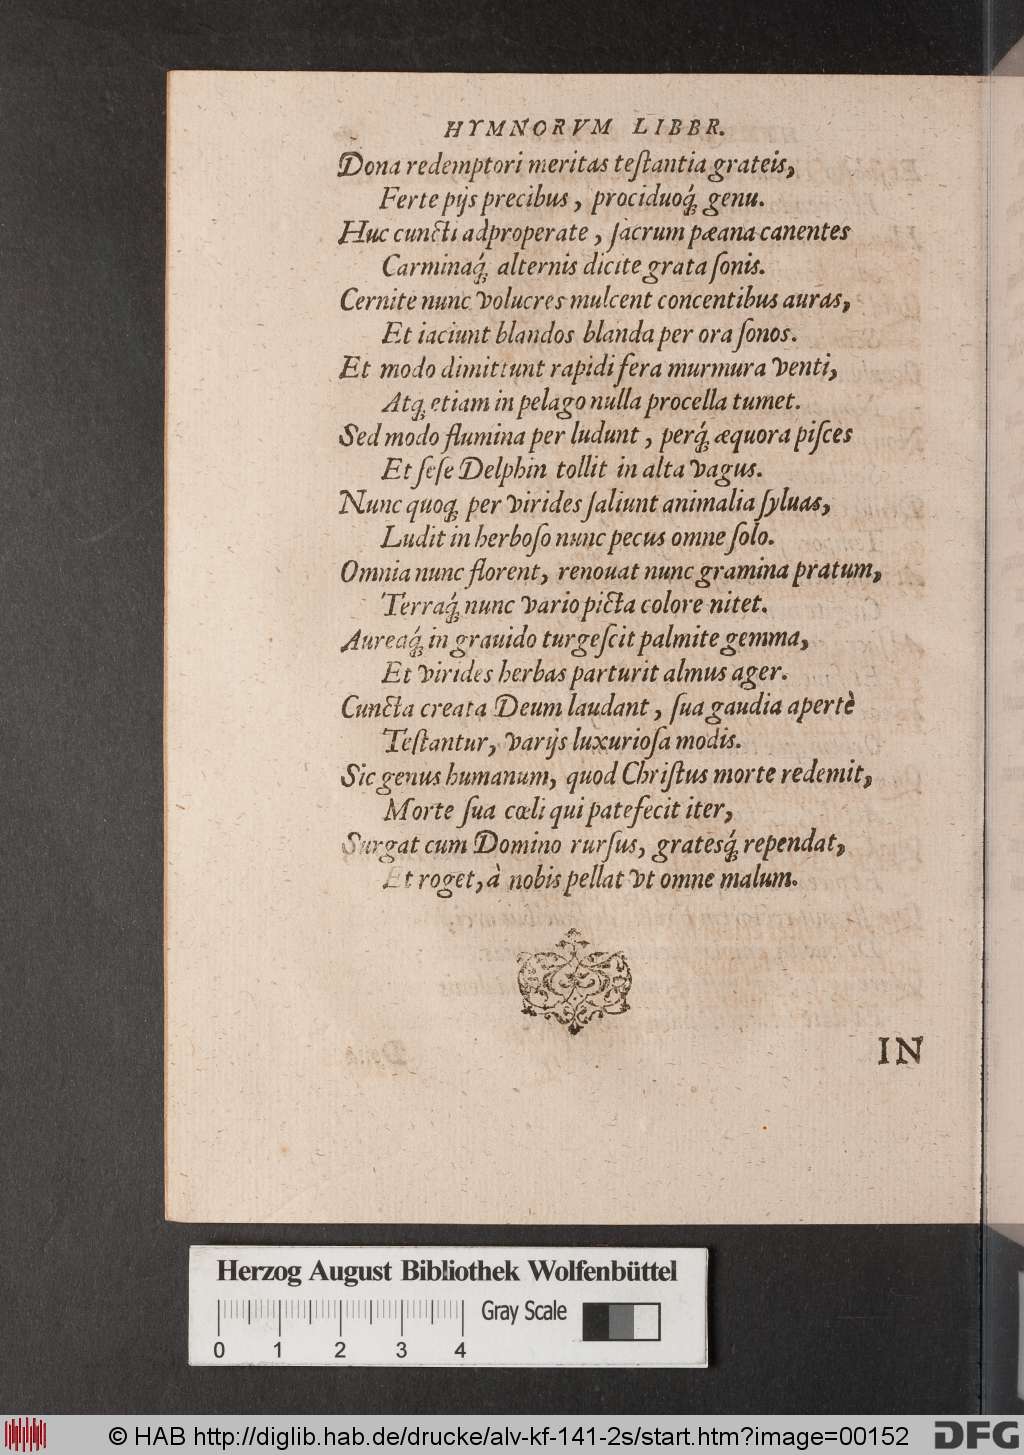 HYMNORVM LIBBR.
Dona redemptori meritas teſtantia grateis,
Ferte pijs precibus, prociduoq́; genu.
Huc cuncti adproperate, ſacrum pæana canentes
Carminaq́; alternis dicite grata ſonis.
Cernite nunc volucres mulcent concentibus auras,
Et iaciunt blandos blanda per ora ſonos.
Et modo dimittunt rapidi fera murmura venti,
Atq; etiam in pelago nulla procella tumet.
Sed modo flumina per ludunt, perq́; æquora piſces
Et ſeſe Delphin tollit in alta vagus.
Nunc quoq; per virides ſaliunt animalia ſyluas,
Ludit in herboſo nunc pecus omne ſolo.
Omnia nunc florent, renouat nunc gramina pratum,
Terraq́; nunc vario picta colore nitet.
Aureaq́; in grauido turgeſcit palmite gemma,
Et virides herbas parturit almus ager.
Cuncta creata Deum laudant, ſua gaudia apertè
Teſtantur, varijs luxurioſa modis.
Sic genus humanum, quod Chriſtus morte redemit,
Morte ſua cœli qui patefecit iter,
Surgat cum Domino rurſus, gratesq́; rependat,
Et roget, à nobis pellat vt omne malum.
IN
Herzog August Bibliothek Wolfenbüttel
Gray Scale
0 1 2 3 4
© HAB http://diglib.hab.de/drucke/alv-kf-141-2s/start.htm?image=00152
DFG